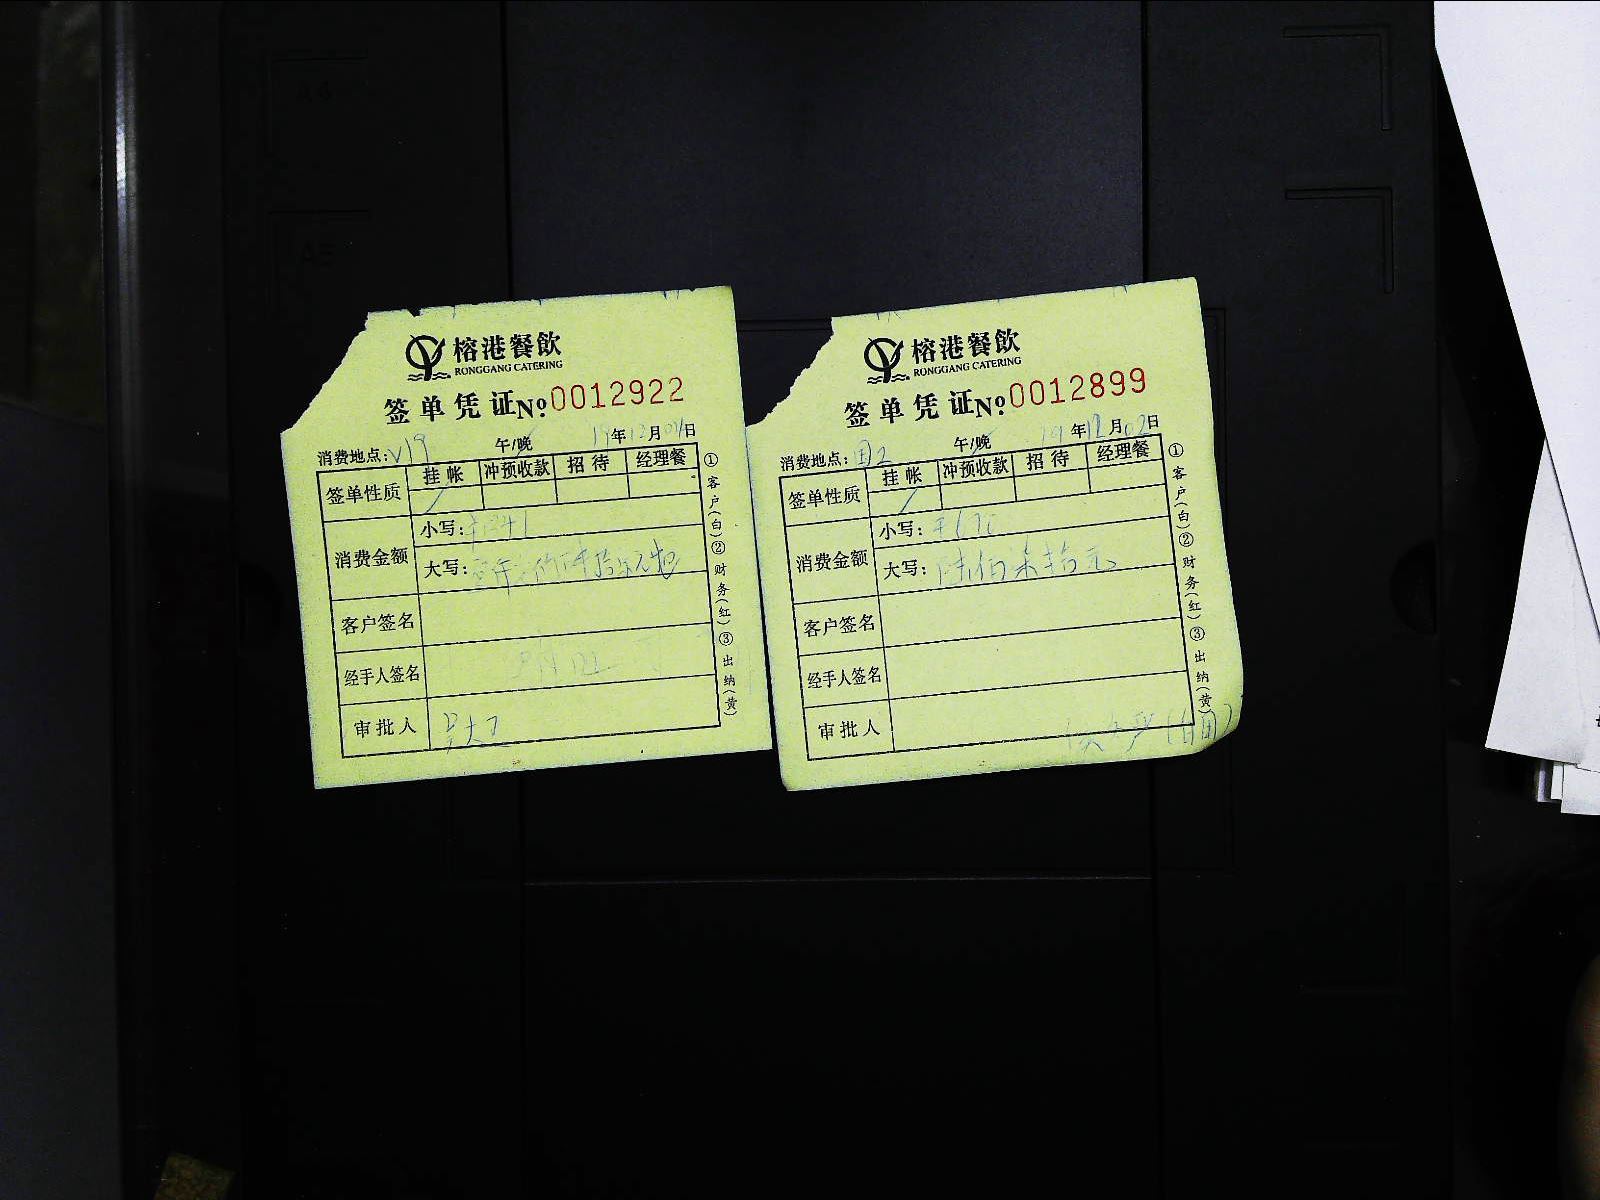 榕港餐飲
RONGGANG CATERING
签单凭证№0012922
消费地点:V19 午/晚 19年12月04日
签单性质 挂帐 冲预收款 招待 经理餐
消费金额 小写:
大写:
客户签名
经手人签名
审批人
①客户(白)②财务(红)③出纳(黄)
榕港餐飲
RONGGANG CATERING
签单凭证№0012899
消费地点: 午/晚 19年12月02日
签单性质 挂帐 冲预收款 招待 经理餐
消费金额 小写:¥670
大写:陆佰柒拾元
客户签名
经手人签名
审批人
①客户(白)②财务(红)③出纳(黄)